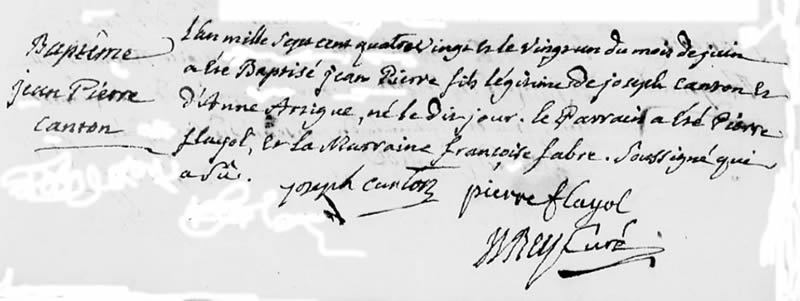 Baptême
jean Pierre
canton
L'an mille sept cent quatre vingt et le vingt un du mois de juin
a été Baptisé jean Pierre fils légitime de joseph canton et
d'Anne Artigue, né le dit jour. le Parrain a été Pierre
flayol, et la Marraine françoise fabre. Soussigné qui
a sû.
joseph canton
pierre flayol
Rey Curé